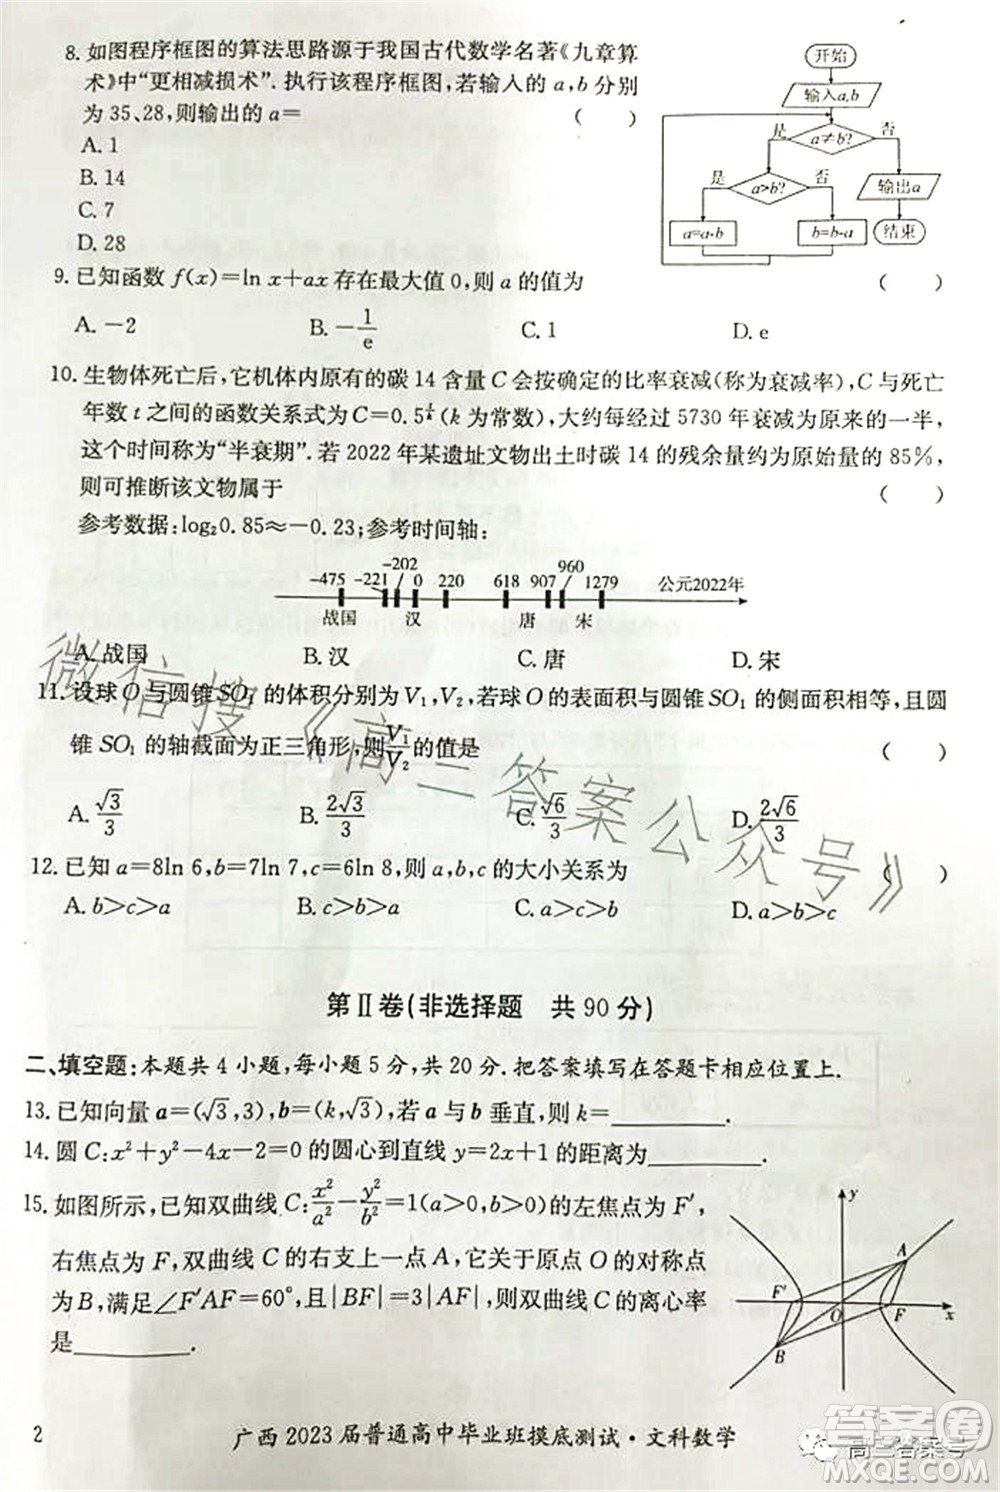 8. 如图程序框图的算法思路源于我国古代数学名著《九章算
术》中“更相减损术”. 执行该程序框图,若输入的 a,b 分别
为 35、28,则输出的 a= ( )
A. 1
B. 14
C. 7
D. 28
开始
输入a,b
是 a≠b? 否
是 a>b? 否 输出a
a=a-b b=b-a 结束
9. 已知函数 f(x)=ln x+ax 存在最大值 0,则 a 的值为 ( )
A. -2 B. -1/e C. 1 D. e
10. 生物体死亡后,它机体内原有的碳 14 含量 C 会按确定的比率衰减(称为衰减率),C 与死亡
年数 t 之间的函数关系式为 C=0.5^(t/k) (k 为常数),大约每经过 5730 年衰减为原来的一半,
这个时间称为“半衰期”. 若 2022 年某遗址文物出土时碳 14 的残余量约为原始量的 85%,
则可推断该文物属于 ( )
参考数据:log₂0.85≈-0.23;参考时间轴:
-475 -221 -202 0 220 618 907 960 1279 公元2022年
战国 汉 唐 宋
A. 战国 B. 汉 C. 唐 D. 宋
11. 设球 O 与圆锥 SO₁ 的体积分别为 V₁,V₂,若球 O 的表面积与圆锥 SO₁ 的侧面积相等,且圆
锥 SO₁ 的轴截面为正三角形,则 V₁/V₂ 的值是 ( )
A. √3/3 B. 2√3/3 C. √6/3 D. 2√6/3
12. 已知 a=8ln 6,b=7ln 7,c=6ln 8,则 a,b,c 的大小关系为 ( )
A. b>c>a B. c>b>a C. a>c>b D. a>b>c
第Ⅱ卷(非选择题 共 90 分)
二、填空题:本题共 4 小题,每小题 5 分,共 20 分. 把答案填写在答题卡相应位置上.
13. 已知向量 a=(√3,3),b=(k,√3),若 a 与 b 垂直,则 k=________.
14. 圆 C:x²+y²-4x-2=0 的圆心到直线 y=2x+1 的距离为________.
15. 如图所示,已知双曲线 C:x²/a²-y²/b²=1(a>0,b>0)的左焦点为 F′,
右焦点为 F,双曲线 C 的右支上一点 A,它关于原点 O 的对称点
为 B,满足∠F′AF=60°,且|BF|=3|AF|,则双曲线 C 的离心率
是________.
y
A
F′ O F x
B
2
广西 2023 届普通高中毕业班摸底测试·文科数学
微信搜《高三答案公众号》
高三答案号
答案圈
MXQE.COM